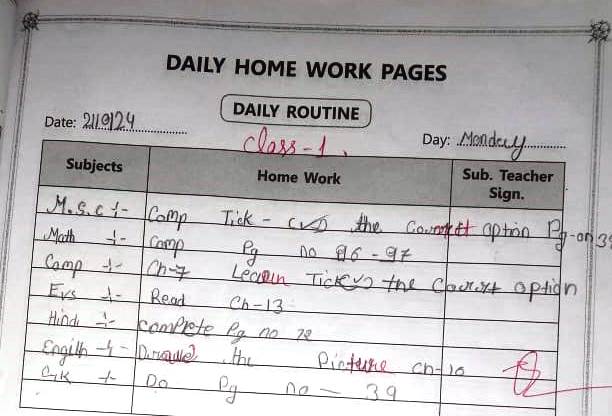 DAILY HOME WORK PAGES
DAILY ROUTINE
Date: 2/9/24
Class-1.
Day: Monday
Subjects Home Work Sub. Teacher Sign.
M.S.C :- Comp Tick - (✓) the Correct option Pg-on 39
Math :- Comp Pg no 96-97
Comp :- Ch-7 Learn Tick (✓) the Correct option
Evs :- Read Ch-13
Hindi :- Complete Pg no 72
Engilh :- the Picture Ch-10
G.K :- Do Pg no - 39